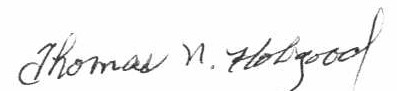 Thomas N. Hobgood